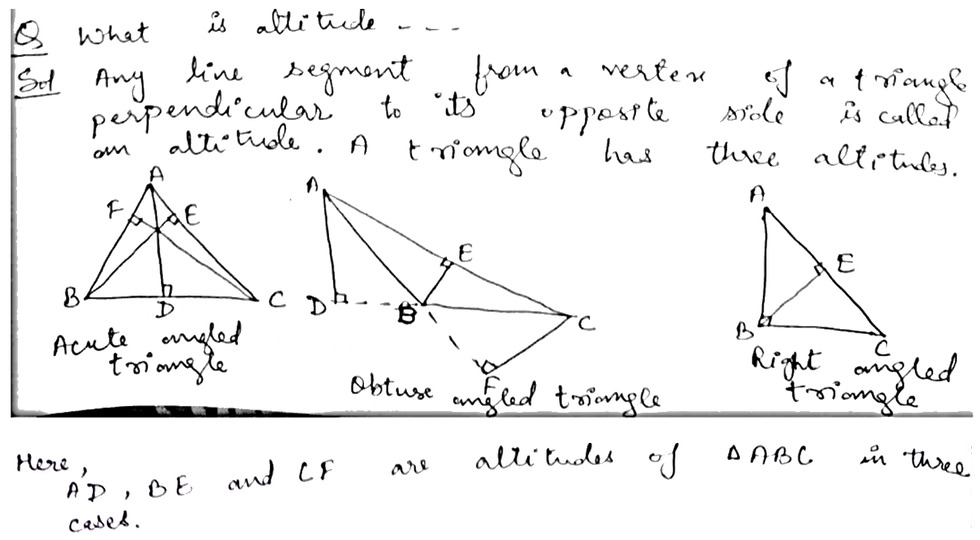 Q What is altitude ----
Sol Any line segment from a vertex of a triangle
perpendicular to its opposite side is called
an altitude. A triangle has three altitudes.
A
F E
B D C
Acute angled
triangle
A
E
D B C
F
Obtuse angled triangle
A
E
B C
Right angled
triangle
Here,
AD, BE and CF are altitudes of ΔABC in three
cases.